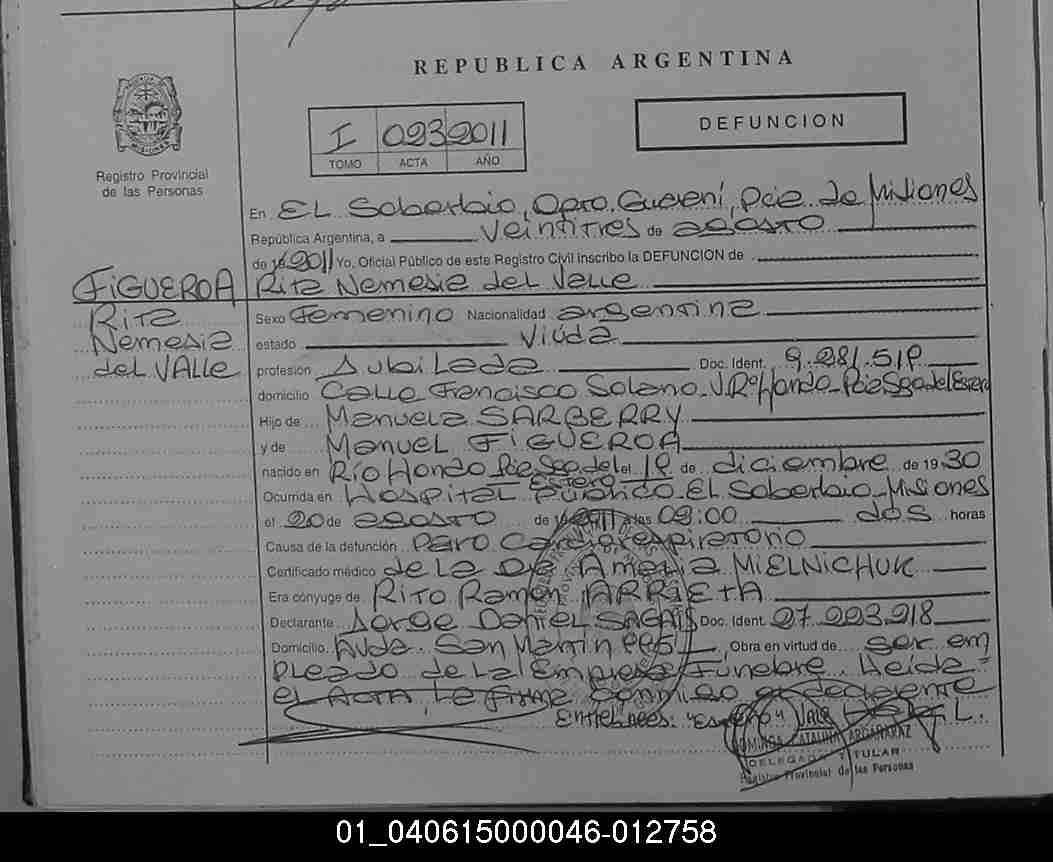 REPUBLICA ARGENTINA
I 023 2011
TOMO ACTA AÑO
DEFUNCION
Registro Provincial
de las Personas
En EL Soberbio, Dpto. Guaraní, Pcia de Misiones
República Argentina, a Veintitres de agosto
de 2011 Yo, Oficial Público de este Registro Civil inscribo la DEFUNCION de
Rita Nemesia del Valle
FIGUEROA
Rita
Nemesia
del VALLe
Sexo Femenino Nacionalidad argentina
estado Viúda
profesión Jubilada Doc. Ident. 9.281.519
domicilio Calle Francisco Solano Hondo Pcia Sgo del Estero
Hijo de Manuela SARBERRY
y de Manuel FIGUEROA
nacido en Río Hondo Pcia Sgo del el 19 de diciembre de 1930
Estero
Ocurrida en Hospital Público El Soberbio Misiones
el 20 de agosto de 2011 a las 09:00 dos horas
Causa de la defunción Paro Cardiorespiratorio
Certificado médico de la Dra Amelia MIELNICHUK
Era cónyuge de Rito Ramon ARRIETA
Declarante Jorge Daniel Doc. Ident. 27.223.218
Domicilio Avda. San Martin Obra en virtud de ser em
pleado de la Empresa Fúnebre. Leida
el ACTA, la firma conmigo el declarante
Entrelineas: "Estero" Vale
DOMINGA CATALINA ARGAÑARAZ
DELEGADA TITULAR
Registro Provincial de las Personas
01_040615000046-012758